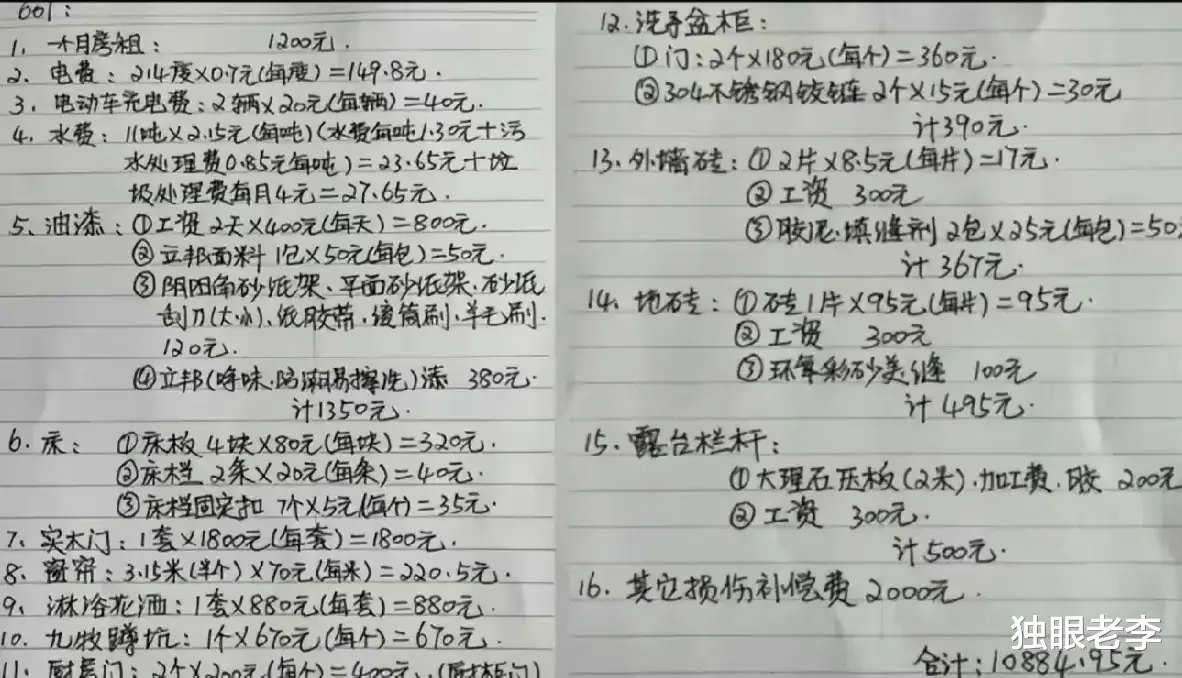 601:
1. 一个月房租: 1200元.
2. 电费: 214度×0.7元(每度)=149.8元.
3. 电动车充电费: 2辆×20元(每辆)=40元.
4. 水费: 11吨×2.15元(每吨)(水费每吨1.30元+污
水处理费0.85元每吨)=23.65元+垃
圾处理费每月4元=27.65元.
5. 油漆: ①工资 2天×400元(每天)=800元.
②立邦面料 1包×50元(每包)=50元.
③阴阳角砂纸架、平面砂纸架、砂纸
刮刀(大小)、纸胶带、滚筒刷、羊毛刷.
120元.
④立邦(净味.防潮易擦洗)漆 380元.
计1350元.
6. 床: ①床板 4块×80元(每块)=320元.
②床栏 2条×20元(每条)=40元.
③床档固定扣 7个×5元(每个)=35元.
7. 实木门: 1套×1800元(每套)=1800元.
8. 窗帘: 3.15米(半个)×70元(每米)=220.5元.
9. 淋浴花洒: 1套×880元(每套)=880元.
10. 九牧蹲坑: 1个×670元(每个)=670元.
11. 厨房门: 2个×200元(每个)=400元.(厨柜门)
12. 洗手盆柜:
①门: 2个×180元(每个)=360元.
②304不锈钢铰链 2个×15元(每个)=30元
计390元.
13. 外墙砖: ①2片×8.5元(每片)=17元.
②工资 300元
③胶泥.填缝剂 2包×25元(每包)=50
计367元.
14. 地砖: ①砖1片×95元(每片)=95元.
②工资 300元
③环氧彩砂美缝 100元
计495元.
15. 露台栏杆:
①大理石压板(2米).加工费.胶 200元
②工资 300元.
计500元.
16. 其它损伤补偿费 2000元.
合计: 10884.95元.
独眼老李